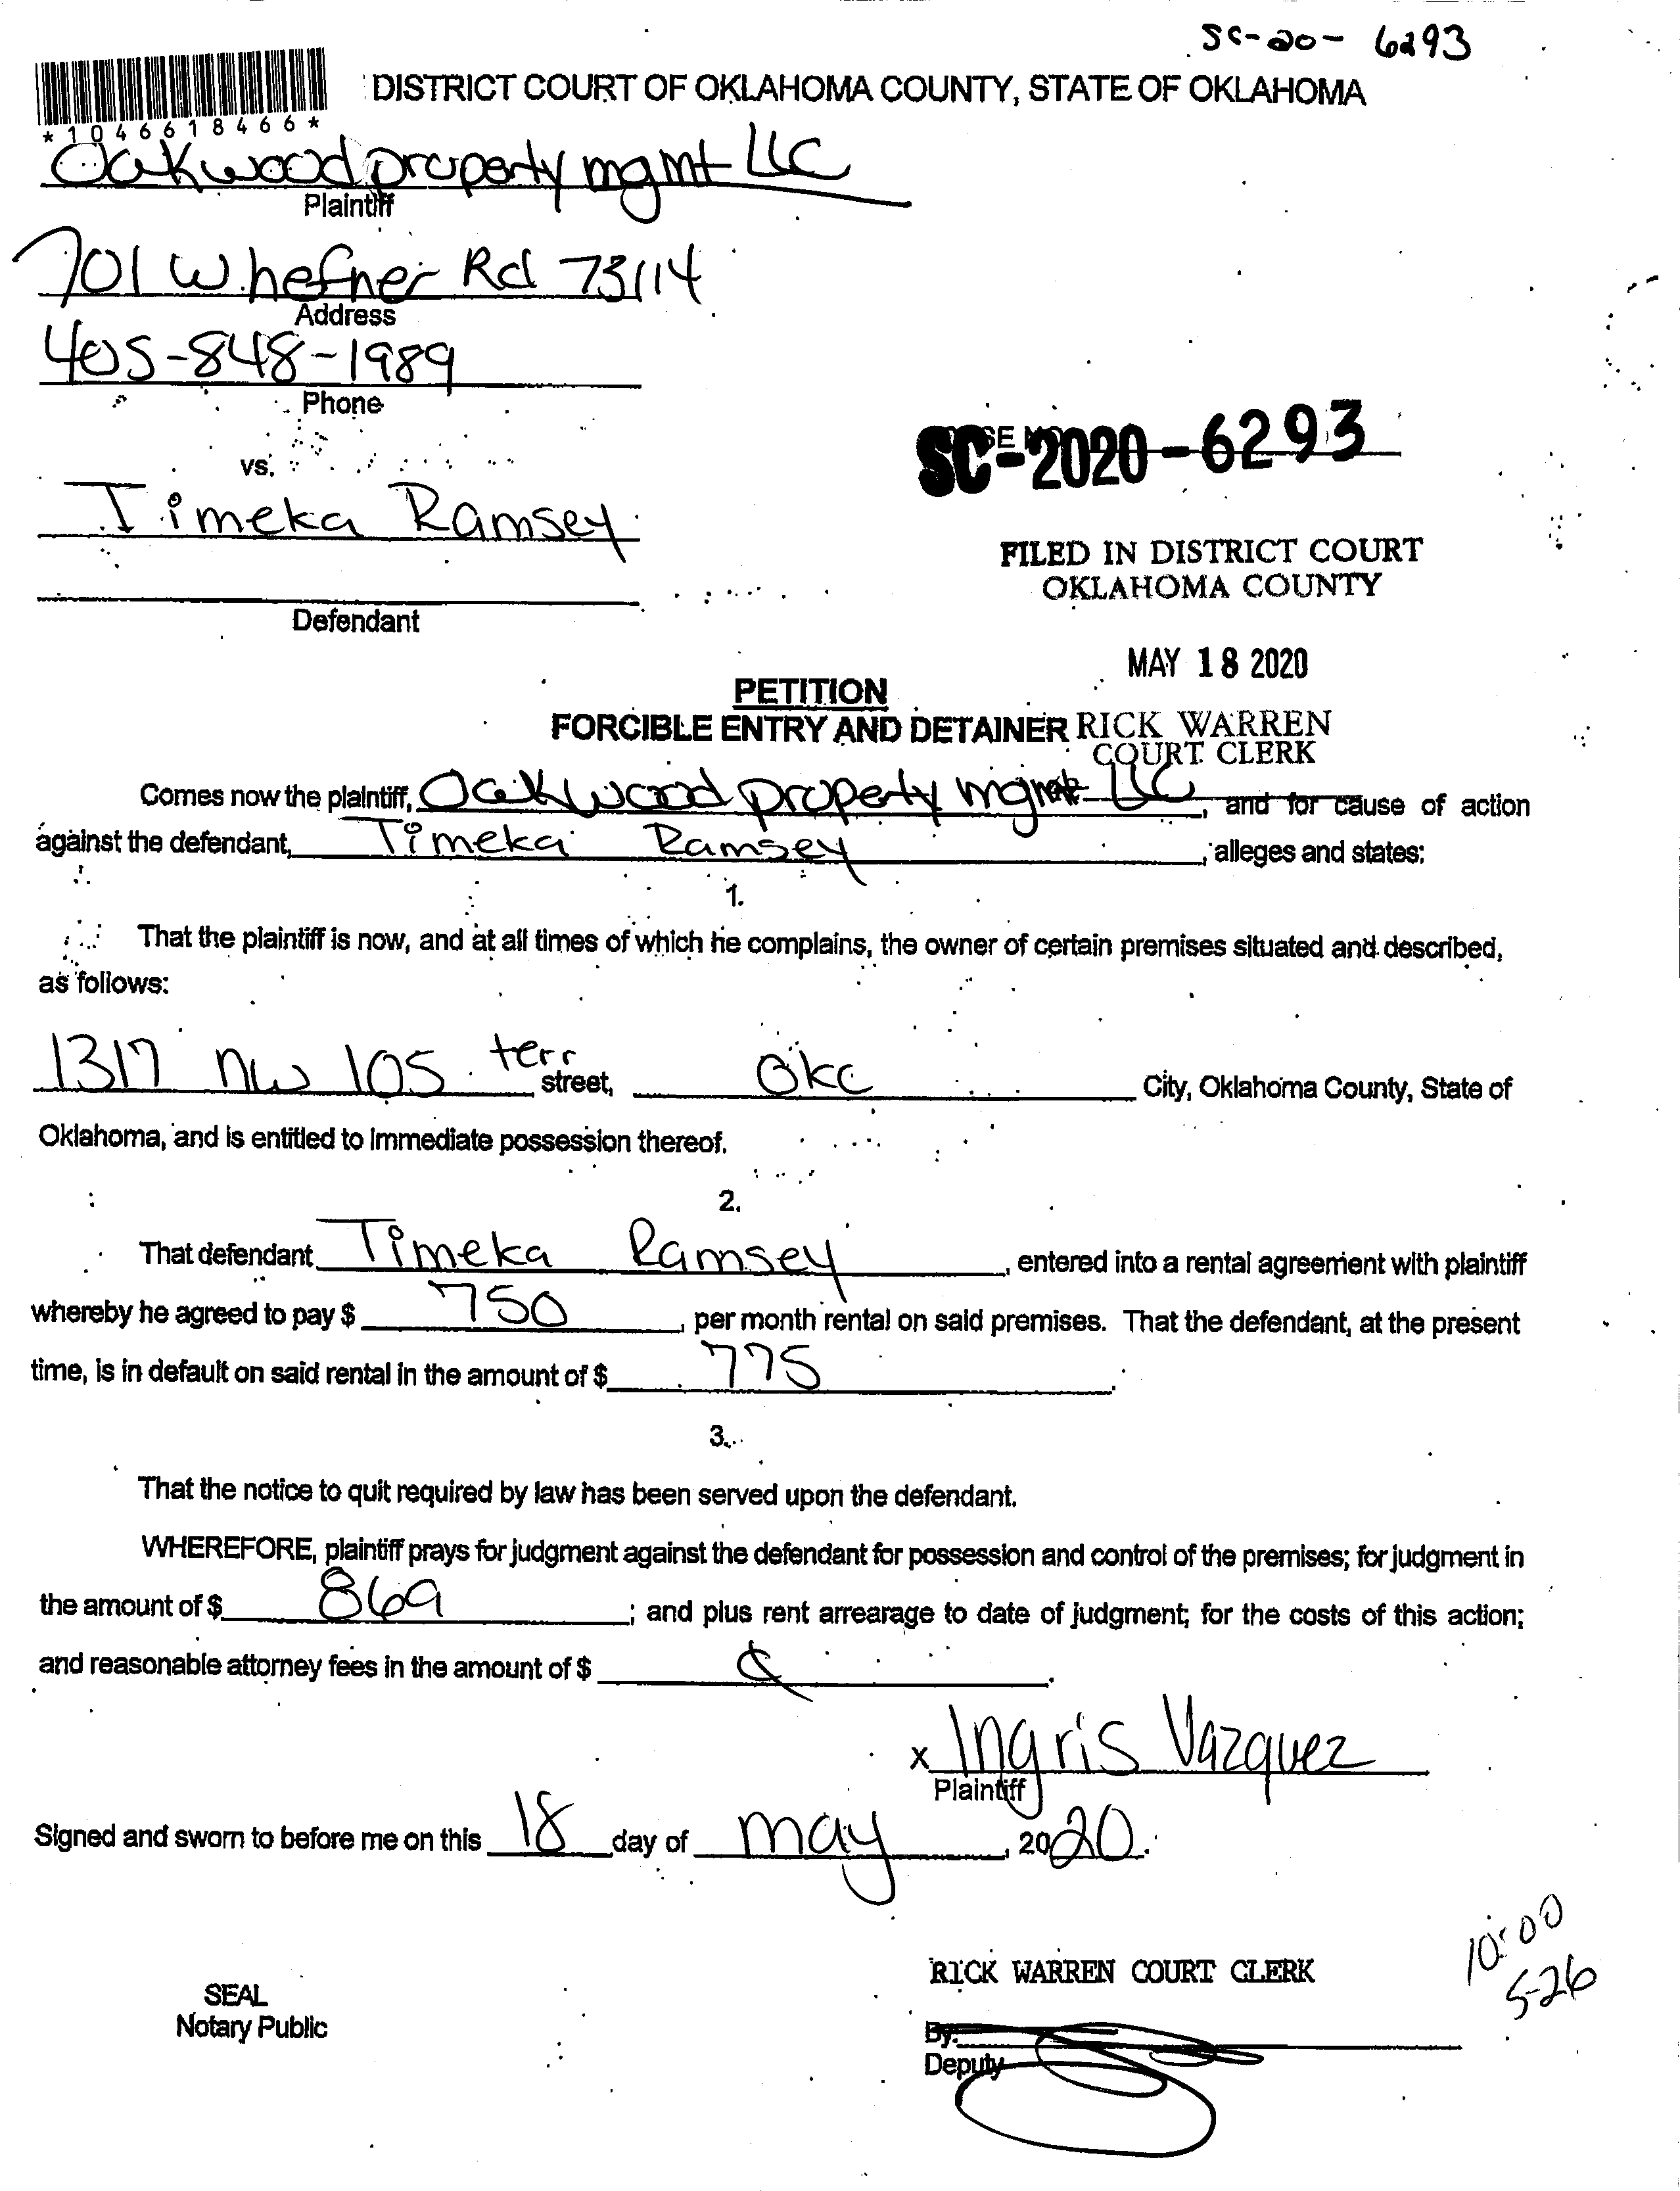 SC-20- 6293
DISTRICT COURT OF OKLAHOMA COUNTY, STATE OF OKLAHOMA
*1046618466*
Oakwood property mgmt LLC
Plaintiff
701 W. hefner Rd 73114
Address
405-848-1989
Phone
SC-2020-6293
vs.
Timeka Ramsey
FILED IN DISTRICT COURT
OKLAHOMA COUNTY
Defendant
MAY 18 2020
PETITION
FORCIBLE ENTRY AND DETAINER RICK WARREN
COURT CLERK
Comes now the plaintiff, Oakwood property mgmt LLC, and for cause of action
against the defendant, Timeka Ramsey, alleges and states:
1.
That the plaintiff is now, and at all times of which he complains, the owner of certain premises situated and described,
as follows:
1317 NW 105 terr street, OKC City, Oklahoma County, State of
Oklahoma, and is entitled to immediate possession thereof.
2.
That defendant Timeka Ramsey, entered into a rental agreement with plaintiff
whereby he agreed to pay $ 750, per month rental on said premises. That the defendant, at the present
time, is in default on said rental in the amount of $ 775.
3.
That the notice to quit required by law has been served upon the defendant.
WHEREFORE, plaintiff prays for judgment against the defendant for possession and control of the premises; for judgment in
the amount of $ 869; and plus rent arrearage to date of judgment; for the costs of this action;
and reasonable attorney fees in the amount of $ .
x Ingris Vazquez
Plaintiff
Signed and sworn to before me on this 18 day of may, 2020.
10:00
5-26
RICK WARREN COURT CLERK
SEAL
Notary Public
By:
Deputy